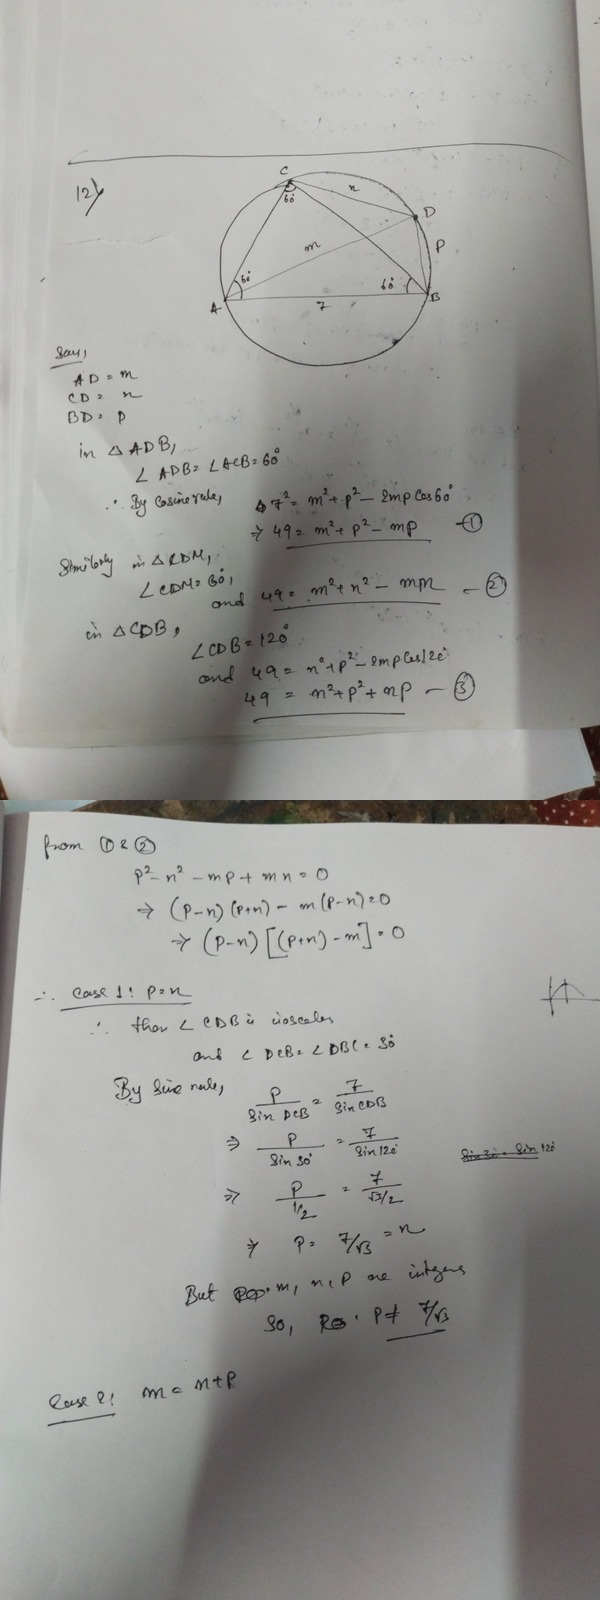 12)
C
60°
n
D
m
P
60°
60°
A
7
B
Say,
AD = m
CD = n
BD = p
in △ ADB,
∠ ADB = ∠ ACB = 60°
∴ By cosine rule, 7² = m² + p² - 2mp cos 60°
⇒ 49 = m² + p² - mp — ①
Similarly in △ CDM,
∠ CDM = 60°,
and 49 = m² + n² - mn — ②
in △ CDB,
∠ CDB = 120°
and 49 = n² + p² - 2mp cos 120°
49 = n² + p² + np — ③
from ① & ②
p² - n² - mp + mn = 0
⇒ (p-n) (p+n) - m(p-n) = 0
⇒ (p-n) [(p+n) - m] = 0
∴ case 1: p = n
∴ then ∠ CDB is isosceles
and ∠ DCB = ∠ DBC = 30°
By sine rule, p/sin DCB = 7/sin CDB
⇒ p/sin 30° = 7/sin 120°
sin 30 = sin 120°
⇒ p/1/2 = 7/√3/2
⇒ p = 7/√3 = n
But m, n, p are integers
so, p ≠ 7/√3
Case 2: m = n + p